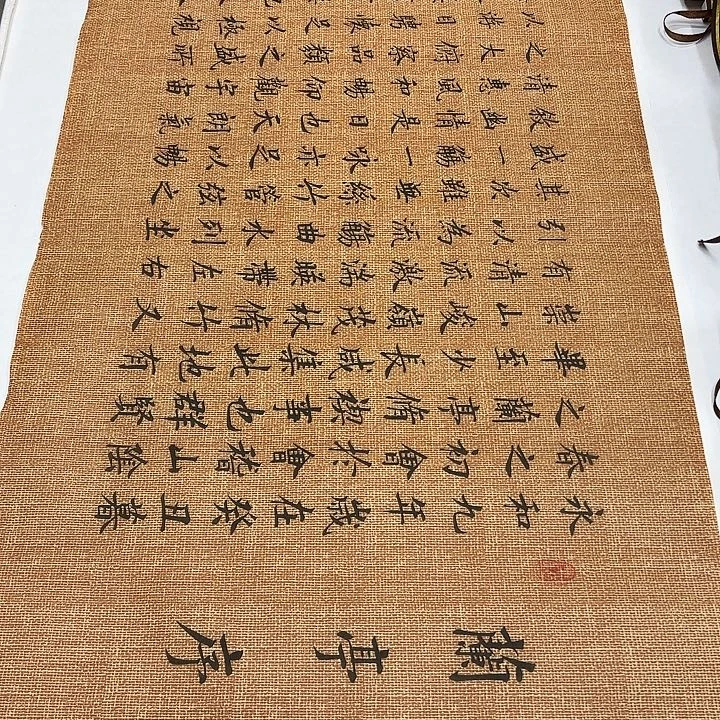 蘭亭序
永和九年歲在癸丑暮
春之初會於會稽山陰
之蘭亭脩禊事也群賢
畢至少長咸集此地有
崇山峻嶺茂林脩竹又
有清流激湍暎帶左右
引以為流觴曲水列坐
其次雖無絲竹管弦之
盛一觴一咏亦足以暢
敘幽情是日也天朗氣
清惠風和暢仰觀宇宙
之大俯察品類之盛所
以遊目騁懷足以極視